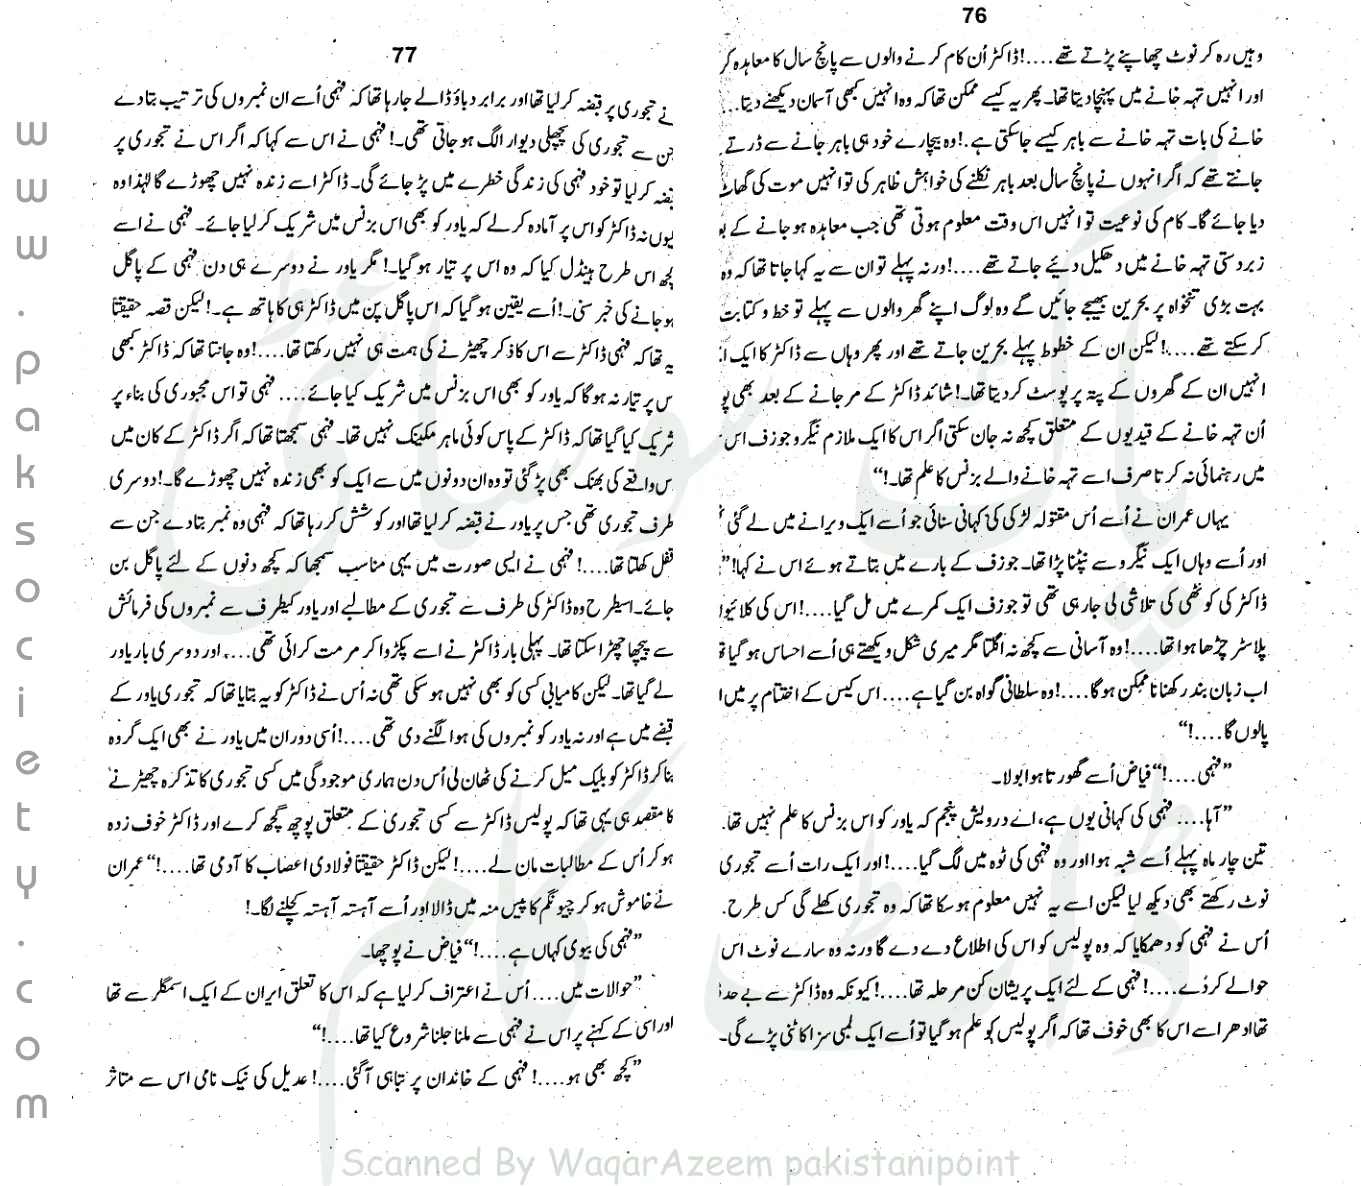 76
وہیں رہ کر نوٹ چھاپنے پڑتے تھے....! ڈاکٹر اُن کام کرنے والوں سے پانچ سال کا معاہدہ کر
اور انہیں تہہ خانے میں پہنچا دیتا تھا۔ پھر یہ کیسے ممکن تھا کہ وہ انہیں کبھی آسمان دیکھنے دیتا...
خانے کی بات تہہ خانے سے باہر کیسے جا سکتی ہے.! وہ بیچارے خود ہی باہر جانے سے ڈرتے
جانتے تھے کہ اگر انہوں نے پانچ سال بعد باہر نکلنے کی خواہش ظاہر کی تو انہیں موت کی گھاٹ
دیا جائے گا۔ کام کی نوعیت تو انہیں اس وقت معلوم ہوتی تھی جب معاہدہ ہو جانے کے
زبردستی تہہ خانے میں دھکیل دیئے جاتے تھے....! ورنہ پہلے تو ان سے یہ کہا جاتا تھا کہ وہ
بہت بڑی تنخواہ پر بحرین بھیجے جائیں گے وہ لوگ اپنے گھر والوں سے پہلے تو خط و کتابت
کر سکتے تھے....! لیکن ان کے خطوط پہلے بحرین جاتے تھے اور پھر وہاں سے ڈاکٹر کا ایک
انہیں ان کے گھروں کے پتہ پر پوسٹ کر دیتا تھا۔! شائد ڈاکٹر کے مر جانے کے بعد بھی
اُن تہہ خانے کے قیدیوں کے متعلق کچھ نہ جان سکتی اگر اس کا ایک ملازم نیگرو جوزف اس
میں رہنمائی نہ کرتا صرف اسے تہہ خانے والے بزنس کا علم تھا۔!“
یہاں عمران نے اُسے اُس مقتولہ لڑکی کی کہانی سنائی جو اُسے ایک ویرانے میں لے گئی
اور اُسے وہاں ایک نیگرو سے نپٹنا پڑا تھا۔ جوزف کے بارے میں بتاتے ہوئے اس نے کہا!”
ڈاکٹر کی کوٹھی کی تلاشی لی جا رہی تھی تو جوزف ایک کمرے میں مل گیا....! اس کی کلائیوں
پلاسٹر چڑھا ہوا تھا....! وہ آسانی سے کچھ نہ اگلتا مگر میری شکل دیکھتے ہی اُسے احساس ہو گیا
اب زبان بند رکھنا ناممکن ہوگا....! وہ سلطانی گواہ بن گیا ہے.... اس کیس کے اختتام پر میں
پالوں گا....!“
”فہمی....!“ فیاض اُسے گھورتا ہوا بولا۔
”آہا.... فہمی کی کہانی یوں ہے، اے درویش پنجم کہ یاور کو اس بزنس کا علم نہیں تھا۔
تین چار ماہ پہلے اُسے شبہ ہوا اور وہ فہمی کی ٹوہ میں لگ گیا....! اور ایک رات اُسے تجوری
نوٹ رکھتے بھی دیکھ لیا لیکن اسے یہ نہیں معلوم ہو سکا تھا کہ وہ تجوری کھلے گی کس طرح۔
اُس نے فہمی کو دھمکایا کہ وہ پولیس کو اس کی اطلاع دے دے گا ورنہ وہ سارے نوٹ اس
حوالے کر دے....! فہمی کے لئے ایک پریشان کن مرحلہ تھا....! کیونکہ وہ ڈاکٹر سے بے حد
تھا ادھر اسے اس کا بھی خوف تھا کہ اگر پولیس کو علم ہو گیا تو اُسے ایک لمبی سزا کاٹنی پڑے گی۔
77
نے تجوری پر قبضہ کر لیا تھا اور برابر دباؤ ڈالے جا رہا تھا کہ فہمی اُسے ان نمبروں کی ترتیب بتا دے
جن سے تجوری کی پچھلی دیوار الگ ہو جاتی تھی۔! فہمی نے اس سے کہا کہ اگر اس نے تجوری پر
قبضہ کر لیا تو خود فہمی کی زندگی خطرے میں پڑ جائے گی۔ ڈاکٹر اسے زندہ نہیں چھوڑے گا لہٰذا وہ
کیوں نہ ڈاکٹر کو اس پر آمادہ کر لے کہ یاور کو بھی اس بزنس میں شریک کر لیا جائے۔ فہمی نے اسے
کچھ اس طرح ہینڈل کیا کہ وہ اس پر تیار ہو گیا۔! مگر یاور نے دوسرے ہی دن فہمی کے پاگل
ہو جانے کی خبر سنی۔! اُسے یقین ہو گیا کہ اس پاگل پن میں ڈاکٹر ہی کا ہاتھ ہے۔! لیکن قصہ حقیقتاً
یہ تھا کہ فہمی ڈاکٹر سے اس کا ذکر چھیڑنے کی ہمت ہی نہیں رکھتا تھا....! وہ جانتا تھا کہ ڈاکٹر کبھی
اس پر تیار نہ ہوگا کہ یاور کو بھی اس بزنس میں شریک کیا جائے.... فہمی تو اس مجبوری کی بناء پر
شریک کیا گیا تھا کہ ڈاکٹر کے پاس کوئی ماہر مکینک نہیں تھا۔ فہمی سمجھتا تھا کہ اگر ڈاکٹر کے کان میں
اس واقعے کی بھنک بھی پڑ گئی تو وہ ان دونوں میں سے ایک کو بھی زندہ نہیں چھوڑے گا۔! دوسری
طرف تجوری تھی جس پر یاور نے قبضہ کر لیا تھا اور کوشش کر رہا تھا کہ فہمی وہ نمبر بتا دے جن سے
قفل کھلتا تھا....! فہمی نے ایسی صورت میں یہی مناسب سمجھا کہ کچھ دنوں کے لئے پاگل بن
جائے۔ اسیطرح وہ ڈاکٹر کی طرف سے تجوری کے مطالبے اور یاور کیطرف سے نمبروں کی فرمائش
سے پیچھا چھڑا سکتا تھا۔ پہلی بار ڈاکٹر نے اسے پکڑوا کر مرمت کرائی تھی.... اور دوسری بار یاور
لے گیا تھا۔ لیکن کامیابی کسی کو بھی نہیں ہو سکی تھی نہ اُس نے ڈاکٹر کو یہ بتایا تھا کہ تجوری یاور کے
قبضے میں ہے اور نہ یاور کو نمبروں کی ہوا لگنے دی تھی....! اُسی دوران میں یاور نے بھی ایک گردہ
بنا کر ڈاکٹر کو بلیک میل کرنے کی ٹھان لی اُس دن ہماری موجودگی میں کسی تجوری کا تذکرہ چھیڑنے
کا مقصد ہی یہی تھا کہ پولیس ڈاکٹر سے کسی تجوری کے متعلق پوچھ گچھ کرے اور ڈاکٹر خوف زدہ
ہو کر اُس کے مطالبات مان لے....! لیکن ڈاکٹر حقیقتاً فولادی اعصاب کا آدمی تھا....!“ عمران
نے خاموش ہو کر چیونگم کا پیس منہ میں ڈالا اور اُسے آہستہ آہستہ کچلنے لگا۔!
”فہمی کی بیوی کہاں ہے....!“ فیاض نے پوچھا۔
”حوالات میں.... اُس نے اعتراف کر لیا ہے کہ اس کا تعلق ایران کے ایک اسمگلر سے تھا
اور اسی کے کہنے پر اس نے فہمی سے ملنا جلنا شروع کیا تھا....!“
”کچھ بھی ہو....! فہمی کے خاندان پر تباہی آگئی....! عدیل کی نیک نامی اس سے متاثر
www.paksociety.com
پاک سوسائٹی
ڈاٹ کام
Scanned By WaqarAzeem pakistanipoint